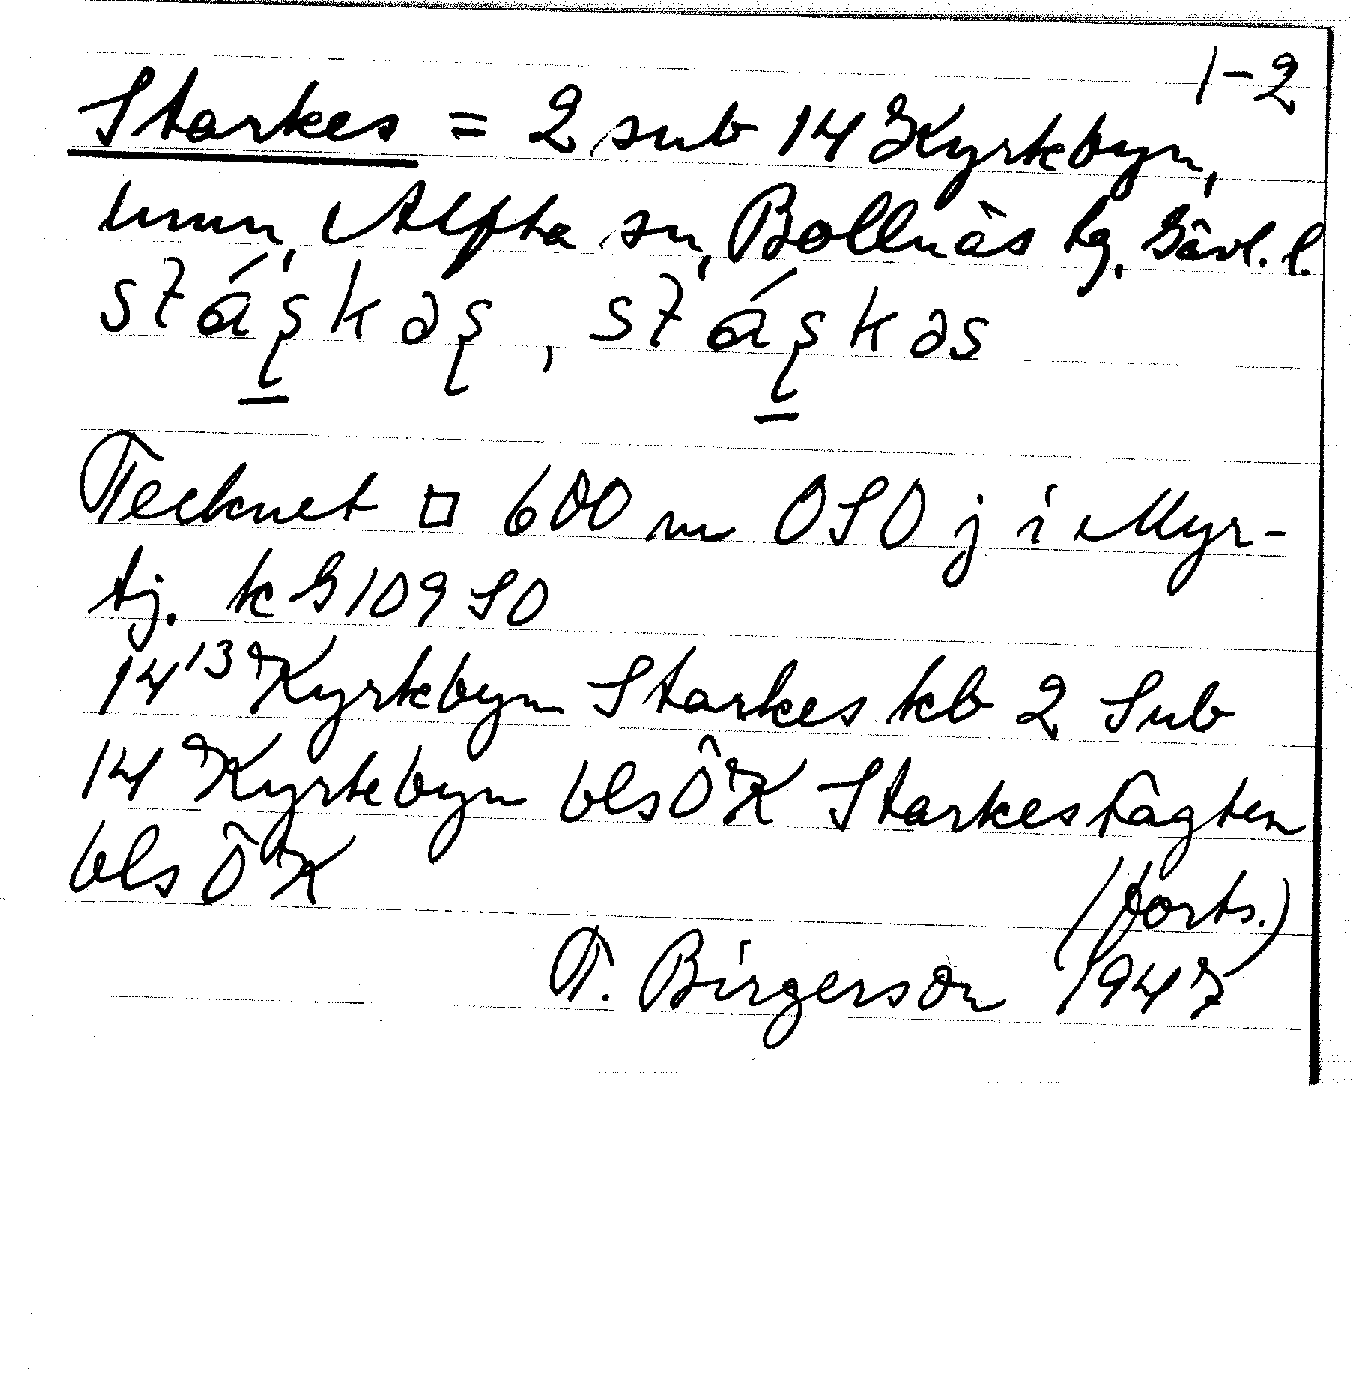 1-2
Starkes = 2 sub 14 Kyrkbyn,
hmn, Alfta sn, Bollnäs tg, Gävl. l.
Tecknet □ 600 m OSO j i Myr-
tj. k G 109 SO
14¹³ Kyrkbyn Starkes kb 2 Sub
14 Kyrkbyn bls ÖK Starkestägten
bls ÖK
(forts.)
T. Birgerson 1947